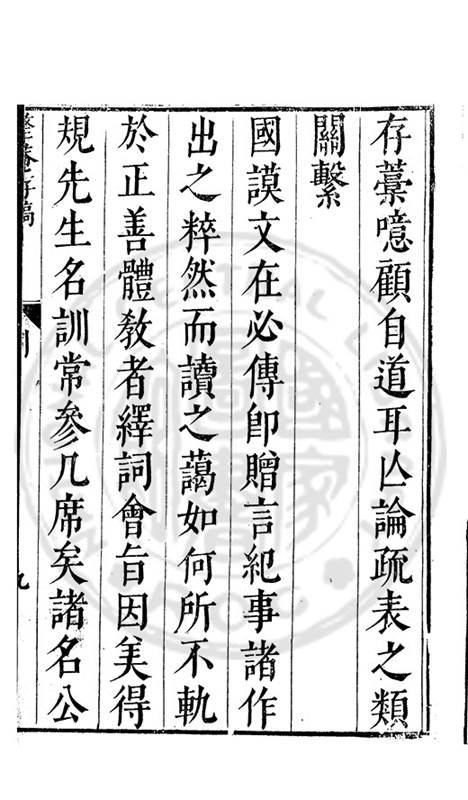 存藁噫顧自道耳亾論疏表之類
關繫
國謨文在必傳卽贈言紀事諸作
出之粹然而讀之藹如何所不軌
於正善體敎者繹詞會旨因美得
規先生名訓常參几席矣諸名公